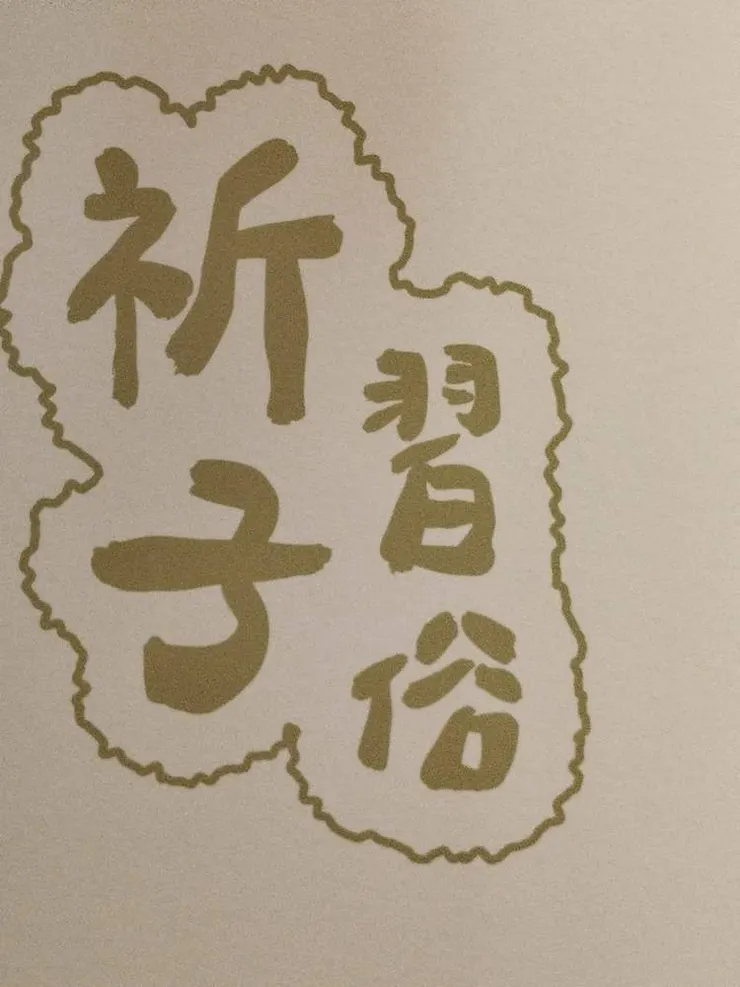 祈子
習俗